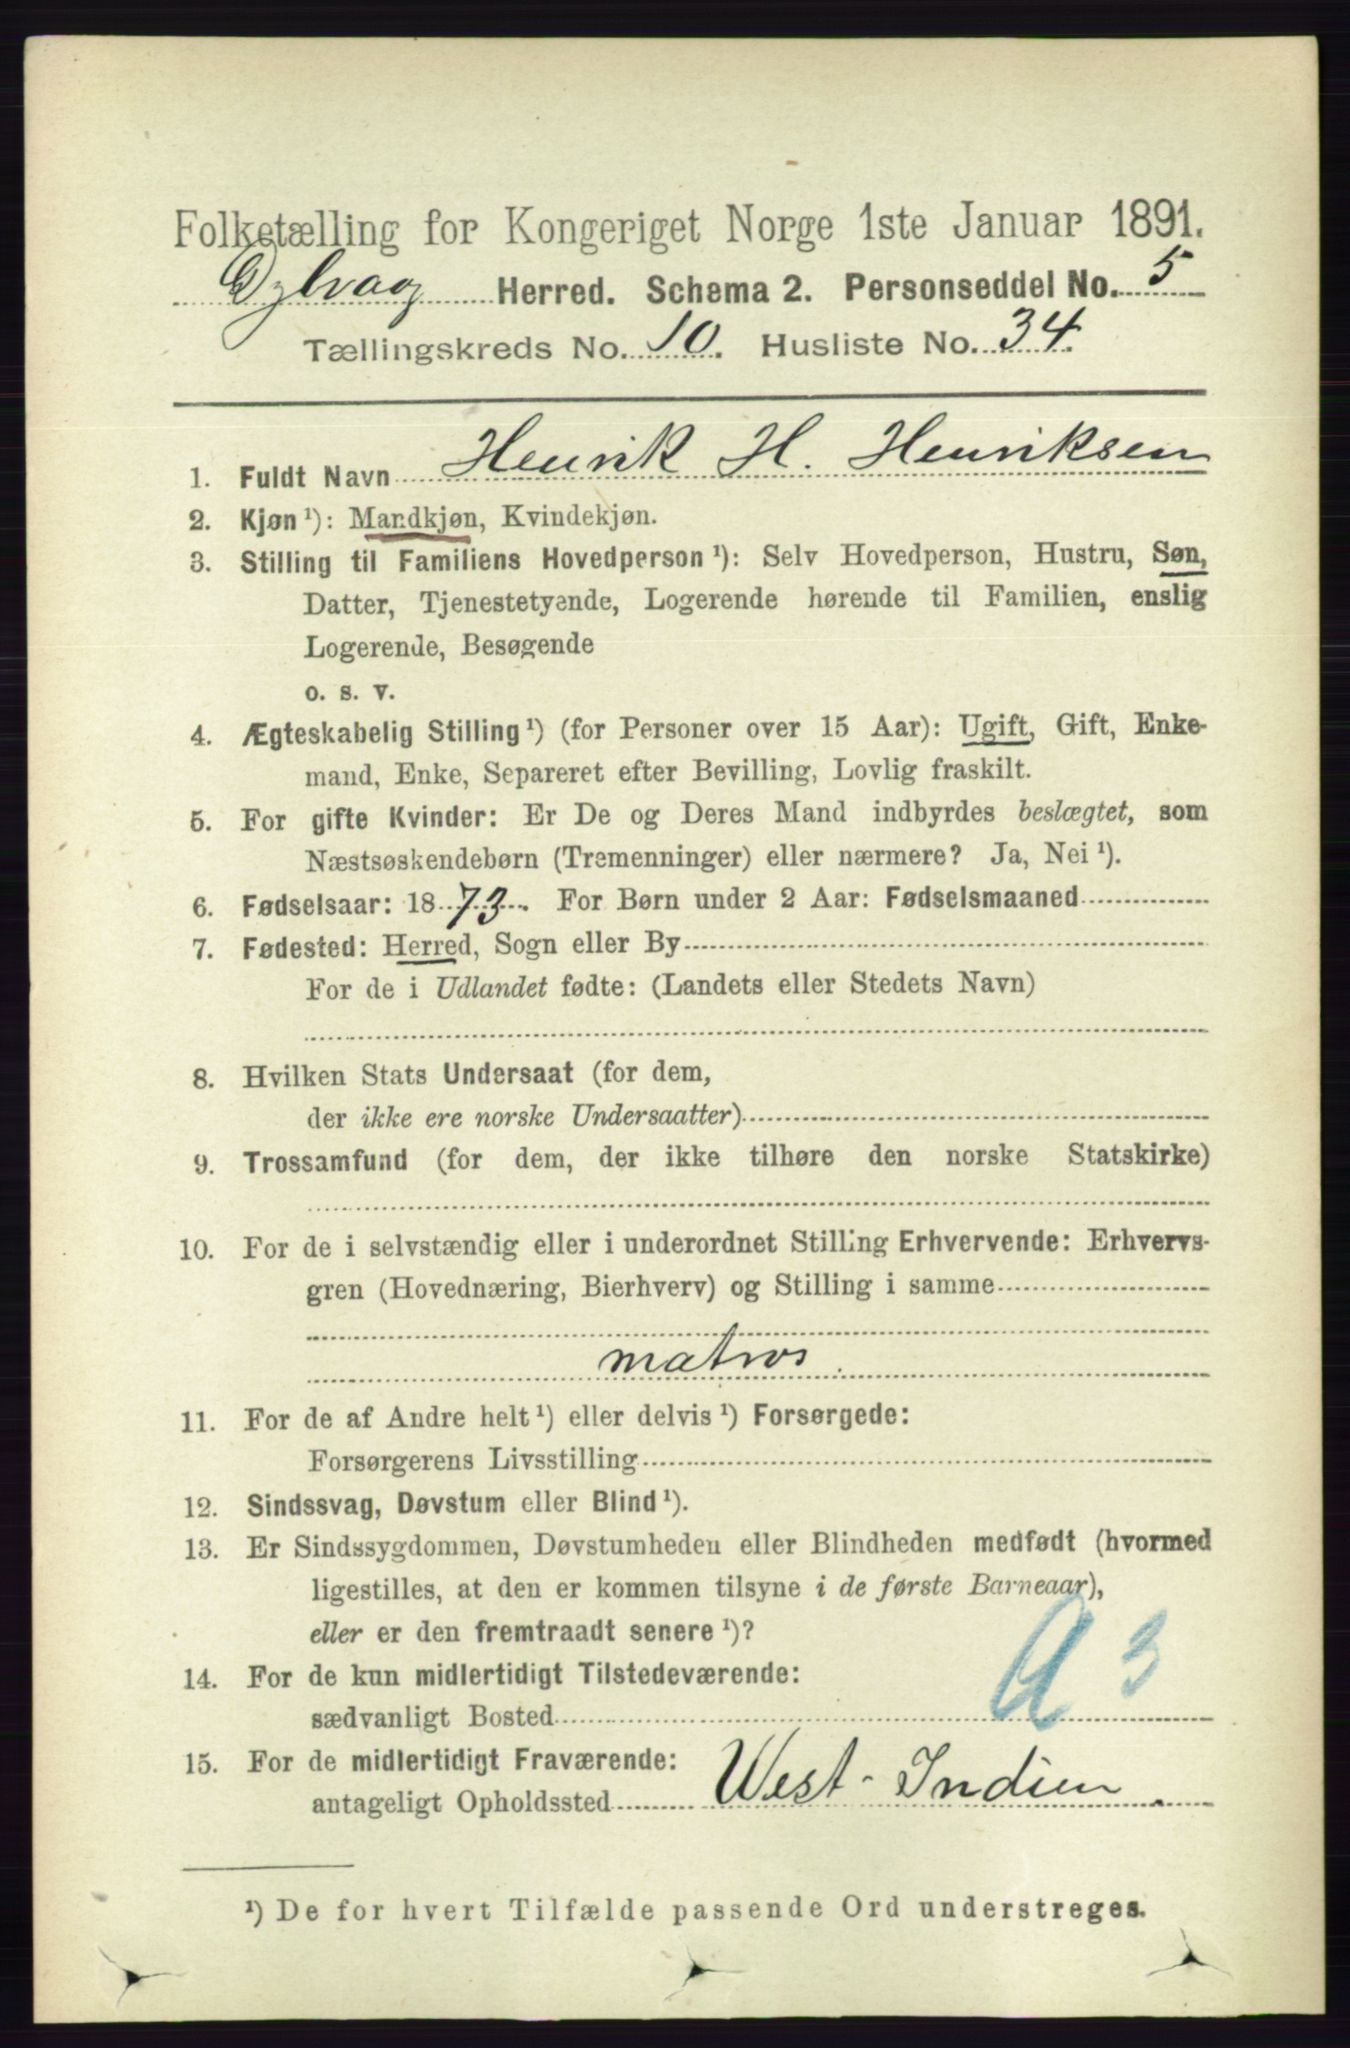 Folketælling for Kongeriget Norge 1ste Januar 1891.
Dybvaag Herred. Schema 2. Personseddel No. 5
Tællingskreds No. 10. Husliste No. 34.
1. Fuldt Navn Henrik H. Henriksen
2. Kjøn ¹): Mandkjøn, Kvindekjøn.
3. Stilling til Familiens Hovedperson ¹): Selv Hovedperson, Hustru, Søn,
Datter, Tjenestetyende, Logerende hørende til Familien, enslig
Logerende, Besøgende
o. s. v.
4. Ægteskabelig Stilling ¹) (for Personer over 15 Aar): Ugift, Gift, Enke-
mand, Enke, Separeret efter Bevilling, Lovlig fraskilt.
5. For gifte Kvinder: Er De og Deres Mand indbyrdes beslægtet, som
Næstsøskendebørn (Tremenninger) eller nærmere? Ja, Nei ¹).
6. Fødselsaar: 1873. For Børn under 2 Aar: Fødselsmaaned
7. Fødested: Herred, Sogn eller By
For de i Udlandet fødte: (Landets eller Stedets Navn)
8. Hvilken Stats Undersaat (for dem,
der ikke ere norske Undersaatter)
9. Trossamfund (for dem, der ikke tilhøre den norske Statskirke)
10. For de i selvstændig eller i underordnet Stilling Erhvervende: Erhvervs-
gren (Hovednæring, Bierhverv) og Stilling i samme
matros.
11. For de af Andre helt ¹) eller delvis ¹) Forsørgede:
Forsørgerens Livsstilling
12. Sindssvag, Døvstum eller Blind ¹).
13. Er Sindssygdommen, Døvstumheden eller Blindheden medfødt (hvormed
ligestilles, at den er kommen tilsyne i de første Barneaar),
eller er den fremtraadt senere ¹)?
A 3
14. For de kun midlertidigt Tilstedeværende:
sædvanligt Bosted
15. For de midlertidigt Fraværende:
antageligt Opholdssted West-Indien.
¹) De for hvert Tilfælde passende Ord understreges.